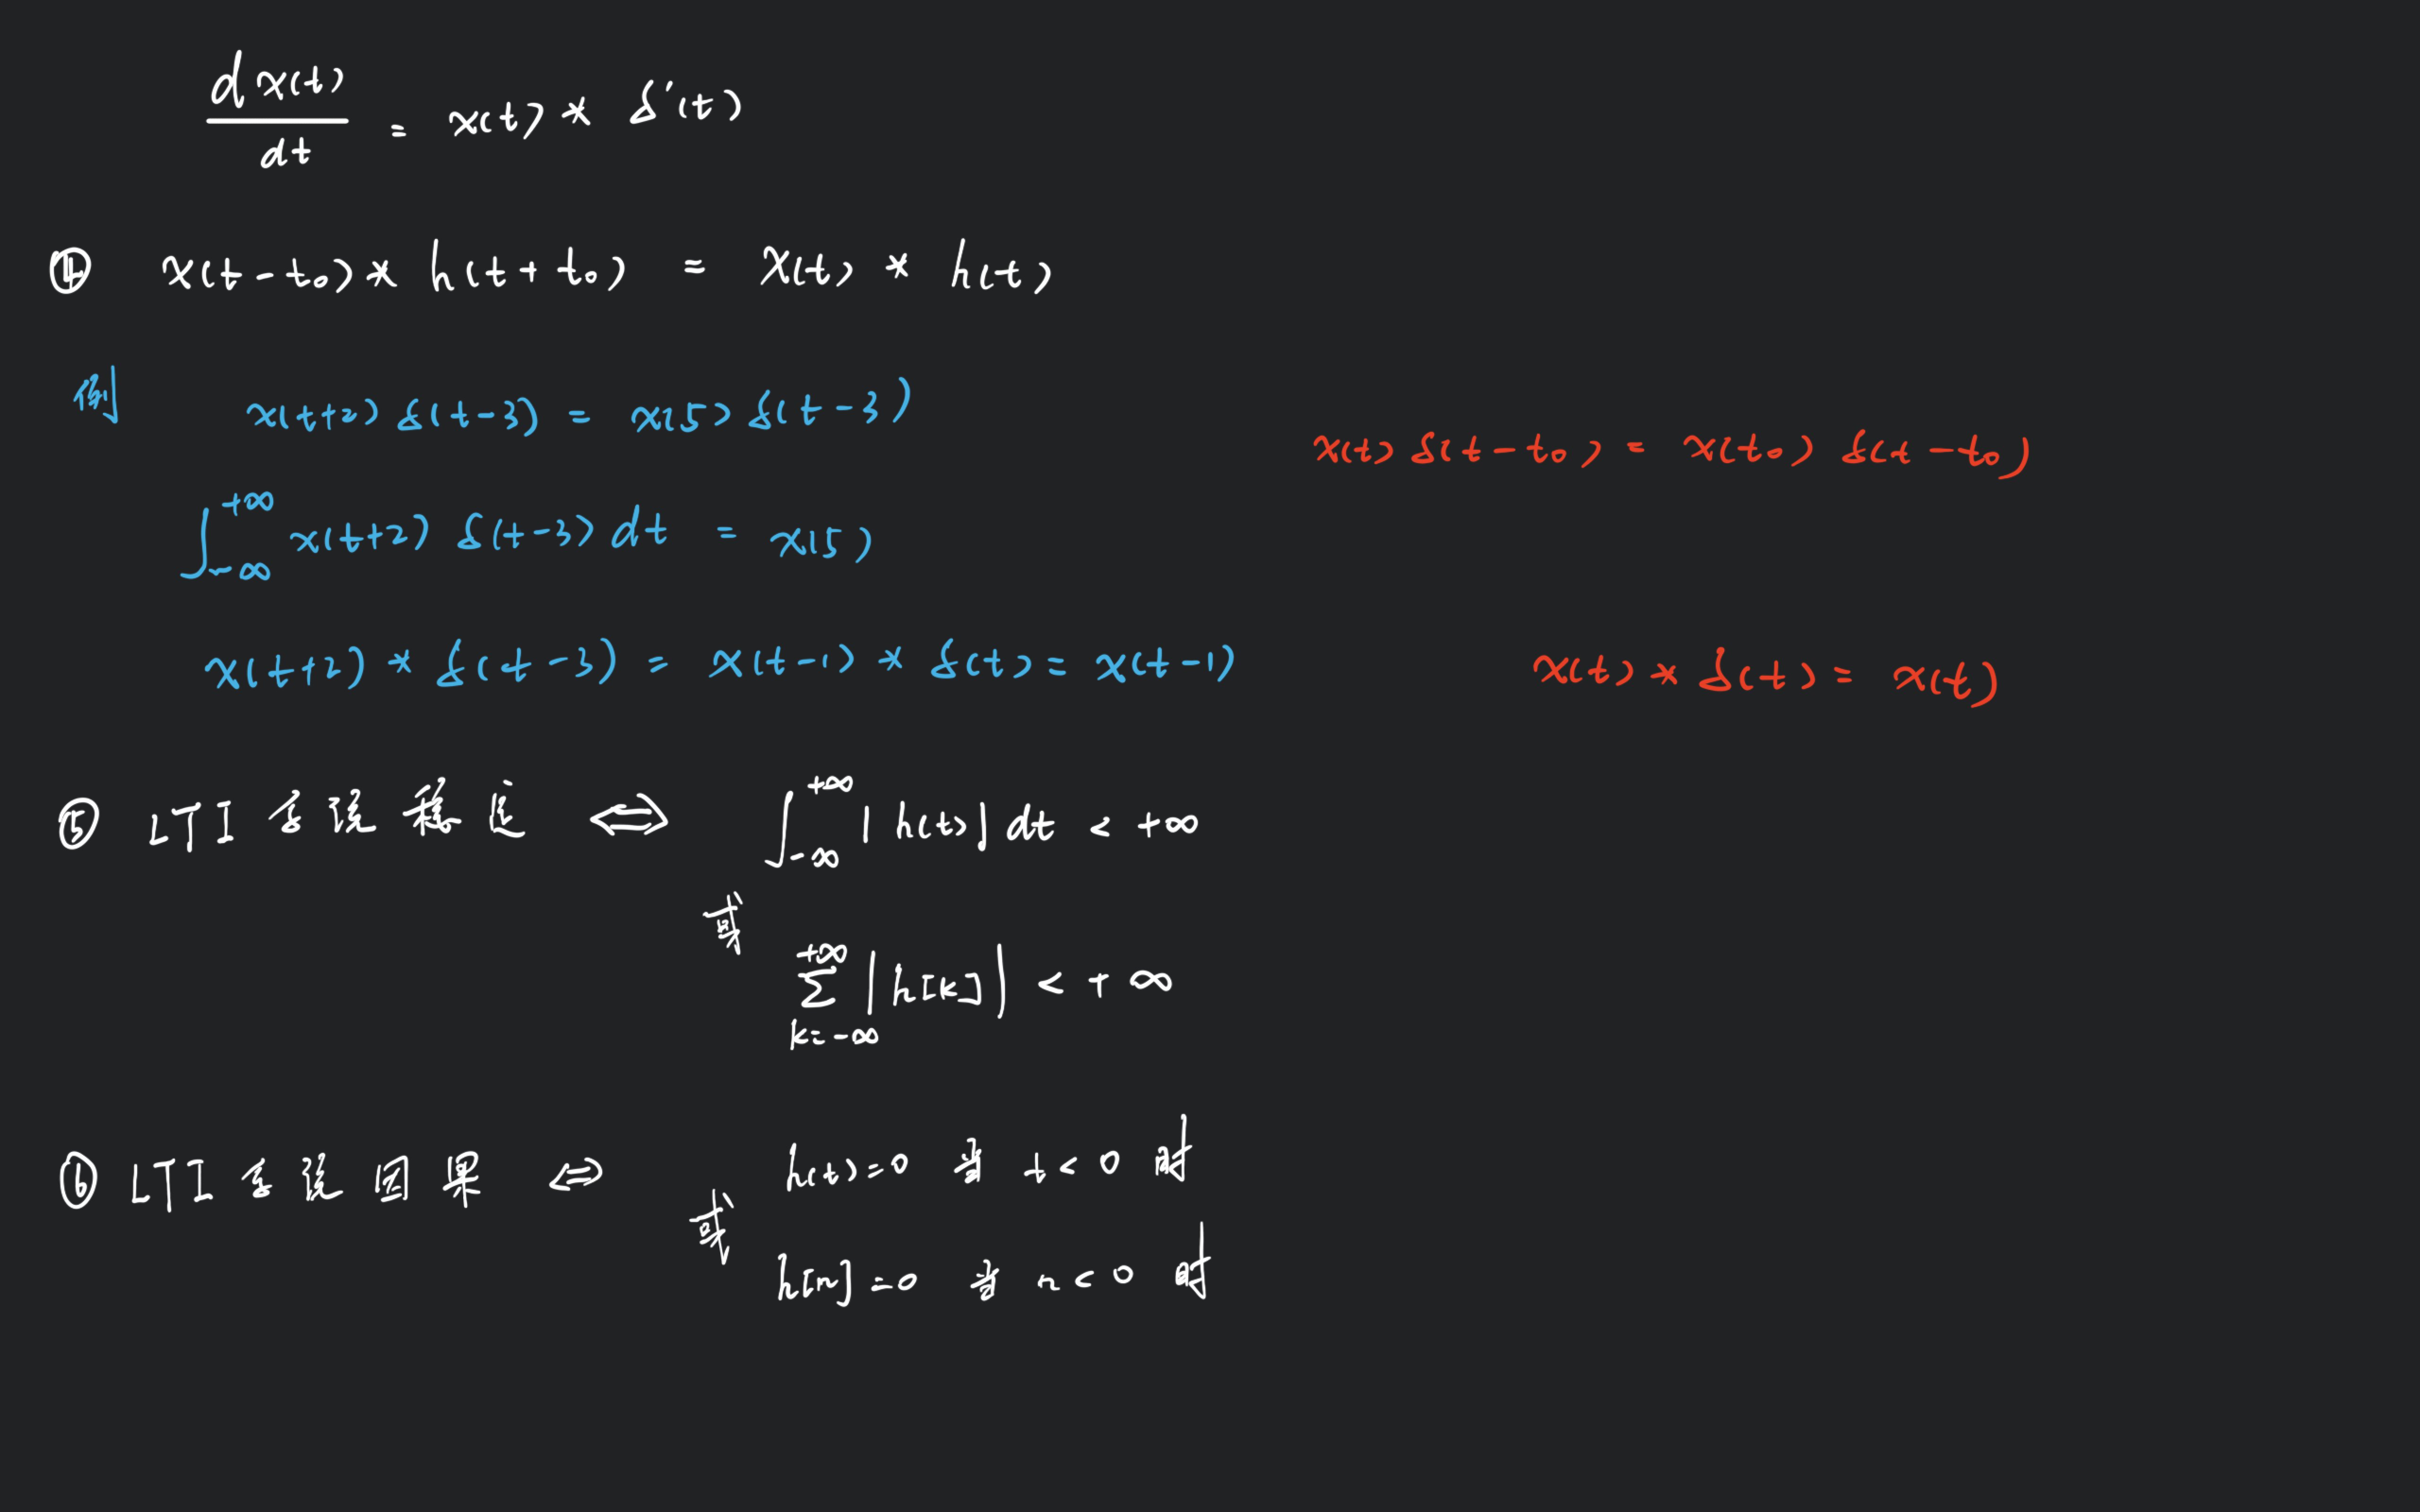 dx(t)/dt = x(t) * δ'(t)
④ x(t-t₀) * h(t+t₀) = x(t) * h(t)
例 x(t+2) δ(t-3) = x(5) δ(t-3)
x(t) δ(t-t₀) = x(t₀) δ(t-t₀)
∫_{-∞}^{+∞} x(t+2) δ(t-3) dt = x(5)
x(t+2) * δ(t-3) = x(t-1) * δ(t) = x(t-1)
x(t) * δ(t) = x(t)
⑤ LTI 系统稳定 ⟺ ∫_{-∞}^{+∞} |h(t)| dt < +∞
或
∑_{k=-∞}^{+∞} |h[k]| < +∞
⑥ LTI 系统因果 ⟺ h(t)=0 当 t<0 时
或
h[n]=0 当 n<0 时